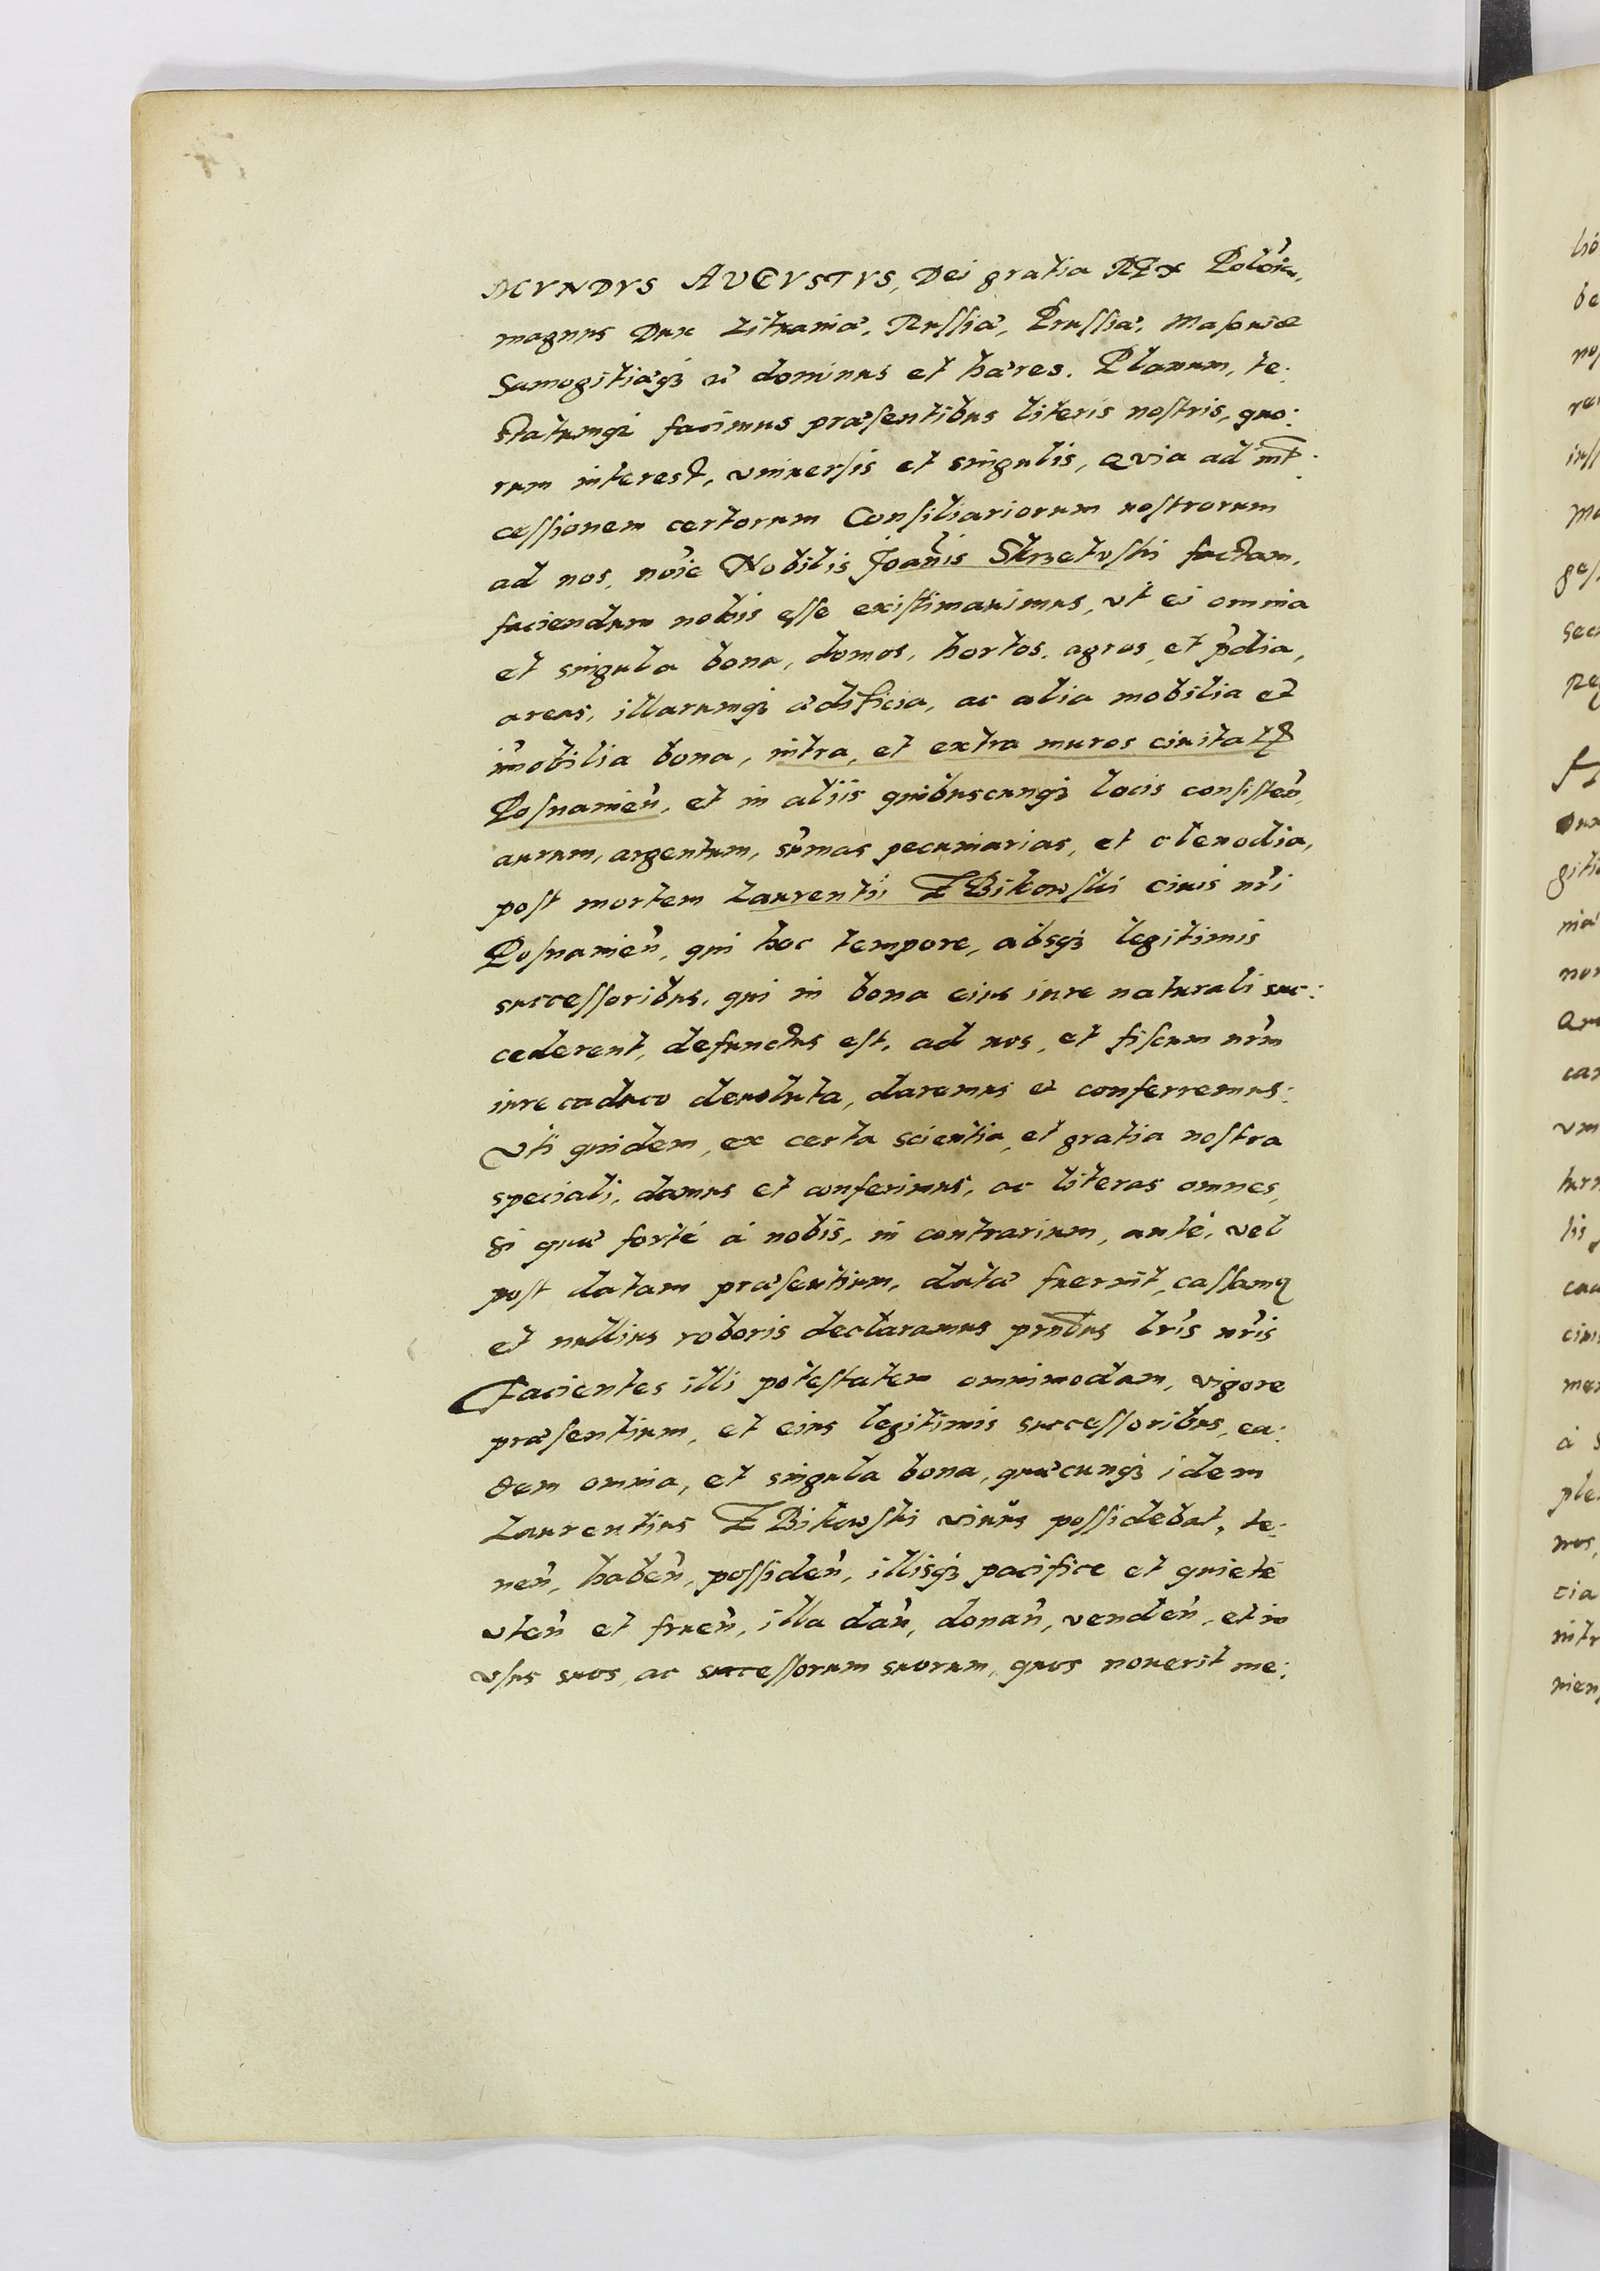 MVNDVS AVGVSTVS, Dei gratia REX Polo'iæ,
magnus Dux Lituaniæ, Russiæ, Prussiæ, Masouiæ
Samogitiæq3 &c dominus et hæres. Planum, te:
statumq3 facimus præsentibus literis nostris, quo:
rum interest, vniuersis et singulis, Qvia ad int̄:
cessionem certorum Consiliariorum nostrorum
ad nos, noı̄e Nobilis Joan̄is Skrzetuski factam,
faciendum nobis esse existimauimus, vt ei omnia
et singula bona, domos, hortos, agros, et p̄dia,
areas, illarumq3 ædificia, ac alia mobilia et
im̄obilia bona, intra, et extra muros ciuitatꝭ
Posnanien̄, et in aliis quibuscunq3 locis consisten̄,
aurum, argentum, sum̄as pecuniarias, et clenodia,
post mortem Laurentii ZBikowski ciuis nr̄i
Posnanien̄, qui hoc tempore, absq3 legitimis
successoribus, qui in bona eius iure naturali suc:
cederent, defunctus est, ad nos, et fiscum nr̄m
iure caduco deuoluta, daremus et conferremus:
Vti quidem, ex certa scientia, et gratia nostra
speciali, damus et conferimus, ac literas omnes,
si quæ fortè à nobis, in contrarium, antè, vel
post datam præsentium, datæ fuerint, cassamꝯ
et nullius roboris declaramus prn̄tbus lr̄is nr̄is
Facientes illi potestatem omnimodam, vigore
præsentium, et eius legitimis successoribus, ea:
dem omnia, et singula bona, quæcunq3 idem
Laurentius ZBikowski viuus possidebat, te:
nen̄, haben̄, possiden̄, illisq3 pacifice et quietè
vten̄ et fruen̄, illa dan̄, donan̄, venden̄, et in
vsus suos, ac successorum suorum, quos nouerit me: